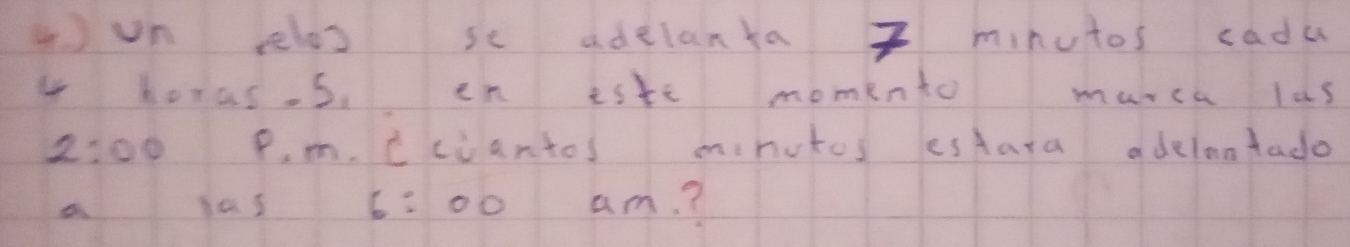 4.) Un reloj se adelanta 7 minutos cada
4 horas. Si en este momento marca las
2:00 P.m. ¿cuantos minutos estara adelantado
a las 6:00 am.?